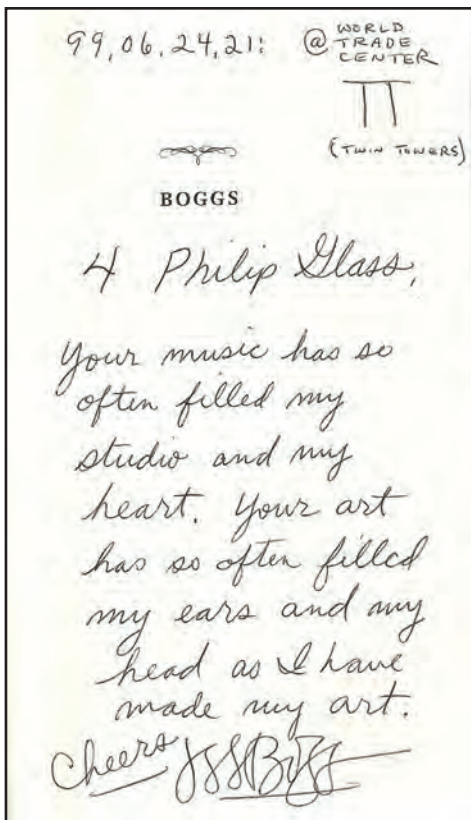 99,06.24,21: @ WORLD
TRADE
CENTER
(TWIN TOWERS)
BOGGS
4 Philip Glass,
Your music has so
often filled my
studio and my
heart. Your art
has so often filled
my ears and my
head as I have
made my art.
Cheers JSG Boggs